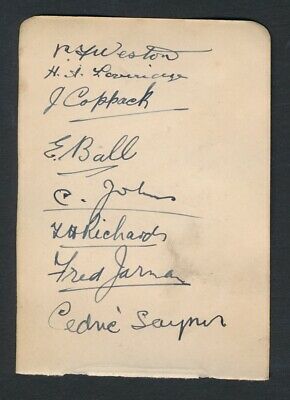 Weston
H. A. Loveridge
J Coppack
E. Ball
C. Johns
Richards
Fred Jarman
Cedric